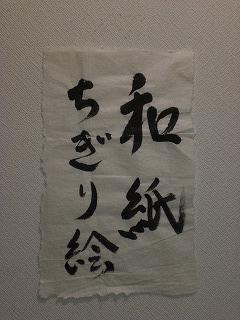 和紙
ちぎり絵